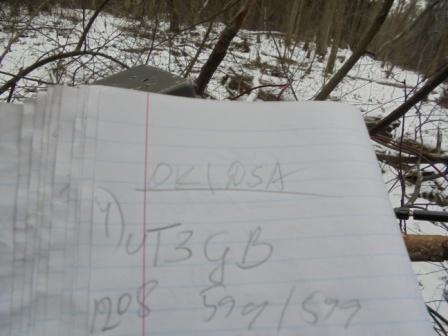 OK1DSA
1) UT3GB
1208 599/599